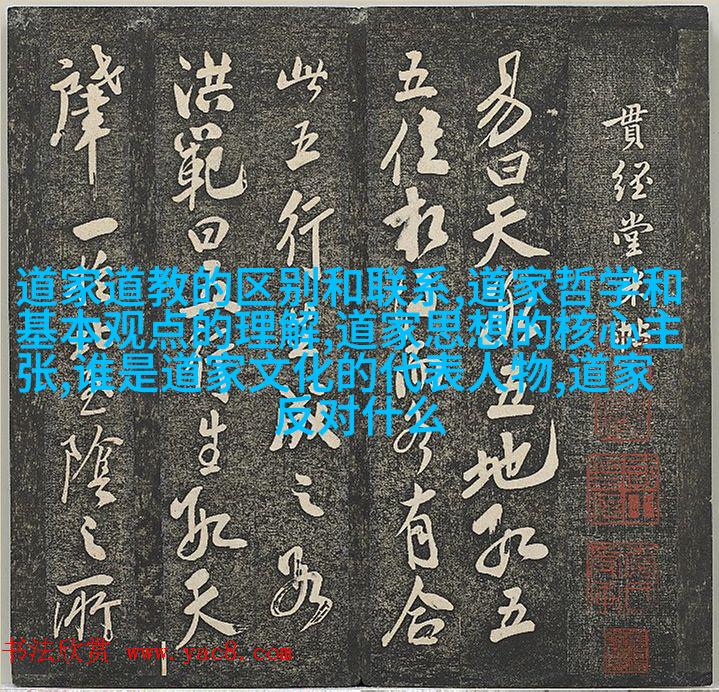 貫經堂米帖
易曰天數五地數五
五位相而各有合
此五行生成之數
洪範曰五行生數天
肇一陰之所
道家道教的区别和联系,道家哲学和
基本观点的理解,道家思想的核心主
张,谁是道家文化的代表人物,道家
反对什么
书法欣赏 www.yac8.com